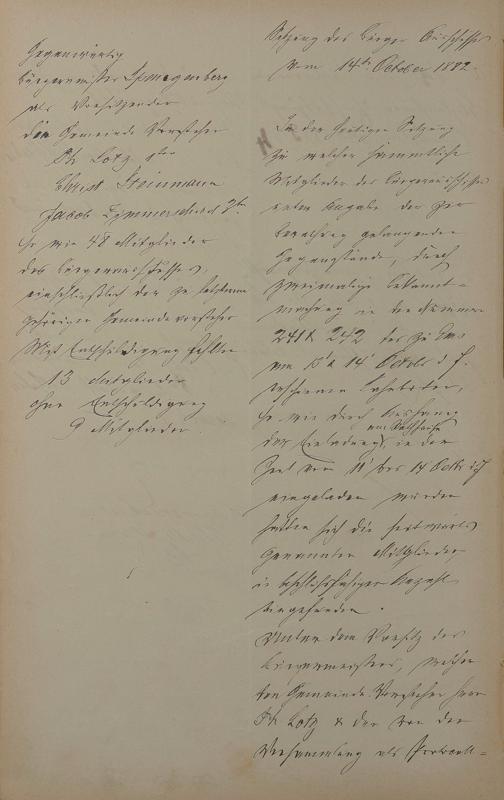 Gegenwärtig
Bürgermeister Spangenberg
als Vorsitzender
die Gemeinde Vorsteher
Ph Lotz 1ter
Christ Steinmann
Jacob Zimmerschied 2te
so wie 48 Mitglieder
des Bürgerausschusses,
einschließlich der zu letzterem
gehörigen Gemeindevorsteher
Mit Entschuldigung fehlten
13 Mitglieder
ohne Entschuldigung
9 Mitglieder
Sitzung des Bürger Ausschusses
vom 14ten October 1882.
In der heutigen Sitzung
zu welcher sämmtliche
Mitglieder des Bürgerausschusses
unter Angabe der zur
Berathung gelangenden
Gegenstände, durch
zweimalige Bekannt-
machung in den Nummern
241 & 242 des zu Ems
vom 13 & 14 Octob d J.
erschienenen Lahnboten,
so wie durch Aushang
der Einladung am Rathhause in der
Zeit vom 11 bis 14 Octb d J
eingeladen worden
hatten sich die seitwärts
genannten Mitglieder
in beschlußfähiger Anzahl
eingefunden.
Unter dem Vorsitz des
Bürgermeisters, welcher
den Gemeinde-Vorsteher Herr
Ph Lotz & der von der
Versammlung als Protocoll=